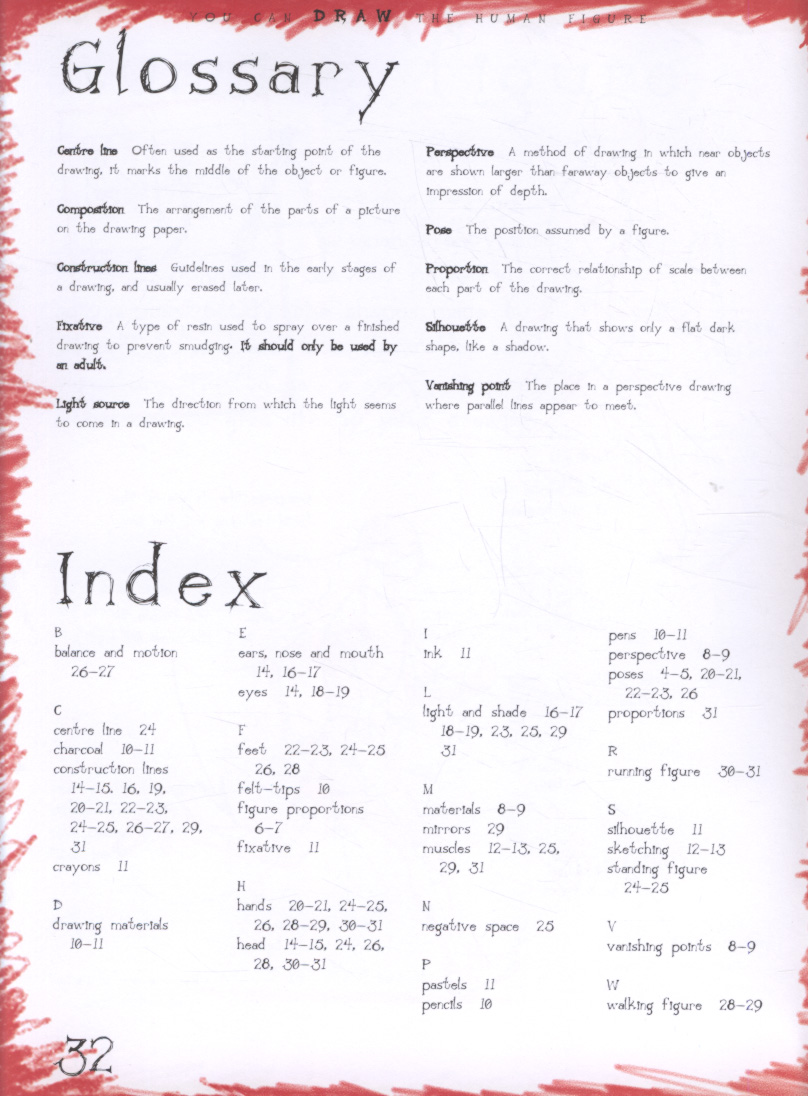 YOU CAN DRAW THE HUMAN FIGURE
Glossary
Centre line Often used as the starting point of the
drawing, it marks the middle of the object or figure.
Composition The arrangement of the parts of a picture
on the drawing paper.
Construction lines Guidelines used in the early stages of
a drawing, and usually erased later.
Fixative A type of resin used to spray over a finished
drawing to prevent smudging. It should only be used by
an adult.
Light source The direction from which the light seems
to come in a drawing.
Perspective A method of drawing in which near objects
are shown larger than faraway objects to give an
impression of depth.
Pose The position assumed by a figure.
Proportion The correct relationship of scale between
each part of the drawing.
Silhouette A drawing that shows only a flat dark
shape, like a shadow.
Vanishing point The place in a perspective drawing
where parallel lines appear to meet.
Index
B
balance and motion
26–27
C
centre line 24
charcoal 10–11
construction lines
14–15, 16, 19,
20–21, 22–23,
24–25, 26–27, 29,
31
crayons 11
D
drawing materials
10–11
E
ears, nose and mouth
14, 16–17
eyes 14, 18–19
F
feet 22–23, 24–25
26, 28
felt–tips 10
figure proportions
6–7
fixative 11
H
hands 20–21, 24–25,
26, 28–29, 30–31
head 14–15, 24, 26,
28, 30–31
I
ink 11
L
light and shade 16–17
18–19, 23, 25, 29
31
M
materials 8–9
mirrors 29
muscles 12–13, 25,
29, 31
N
negative space 25
P
pastels 11
pencils 10
pens 10–11
perspective 8–9
poses 4–5, 20–21,
22–23, 26
proportions 31
R
running figure 30–31
S
silhouette 11
sketching 12–13
standing figure
24–25
V
vanishing points 8–9
W
walking figure 28–29
32